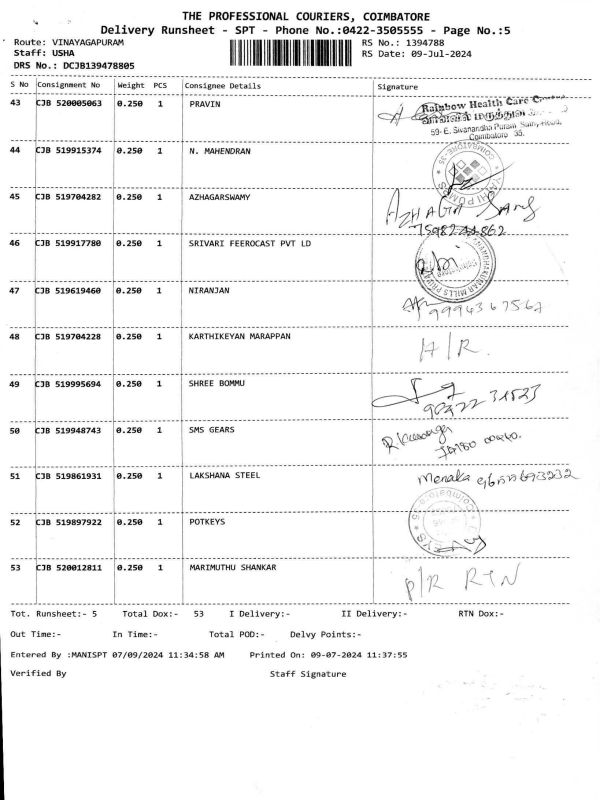 THE PROFESSIONAL COURIERS, COIMBATORE
Delivery Runsheet - SPT - Phone No.:0422-3505555 - Page No.:5
Route: VINAYAGAPURAM RS No.: 1394788
Staff: USHA RS Date: 09-Jul-2024
DRS No.: DCJB139478805
S No Consignment No Weight PCS Consignee Details Signature
43 CJB 520005063 0.250 1 PRAVIN
Rainbow Health Care
59-E, Sivanandha Puram,
Coimbatore 35.
44 CJB 519915374 0.250 1 N. MAHENDRAN
COIMBATORE-35
45 CJB 519704282 0.250 1 AZHAGARSWAMY
AZHAGAR
7598244862
46 CJB 519917780 0.250 1 SRIVARI FEEROCAST PVT LD
47 CJB 519619460 0.250 1 NIRANJAN
9994367567
48 CJB 519704228 0.250 1 KARTHIKEYAN MARAPPAN H/R.
49 CJB 519995694 0.250 1 SHREE BOMMU
50 CJB 519948743 0.250 1 SMS GEARS
51 CJB 519861931 0.250 1 LAKSHANA STEEL Menaka
52 CJB 519897922 0.250 1 POTKEYS
53 CJB 520012811 0.250 1 MARIMUTHU SHANKAR P/R RTN
Tot. Runsheet:- 5 Total Dox:- 53 I Delivery:- II Delivery:- RTN Dox:-
Out Time:- In Time:- Total POD:- Delvy Points:-
Entered By :MANISPT 07/09/2024 11:34:58 AM Printed On: 09-07-2024 11:37:55
Verified By Staff Signature